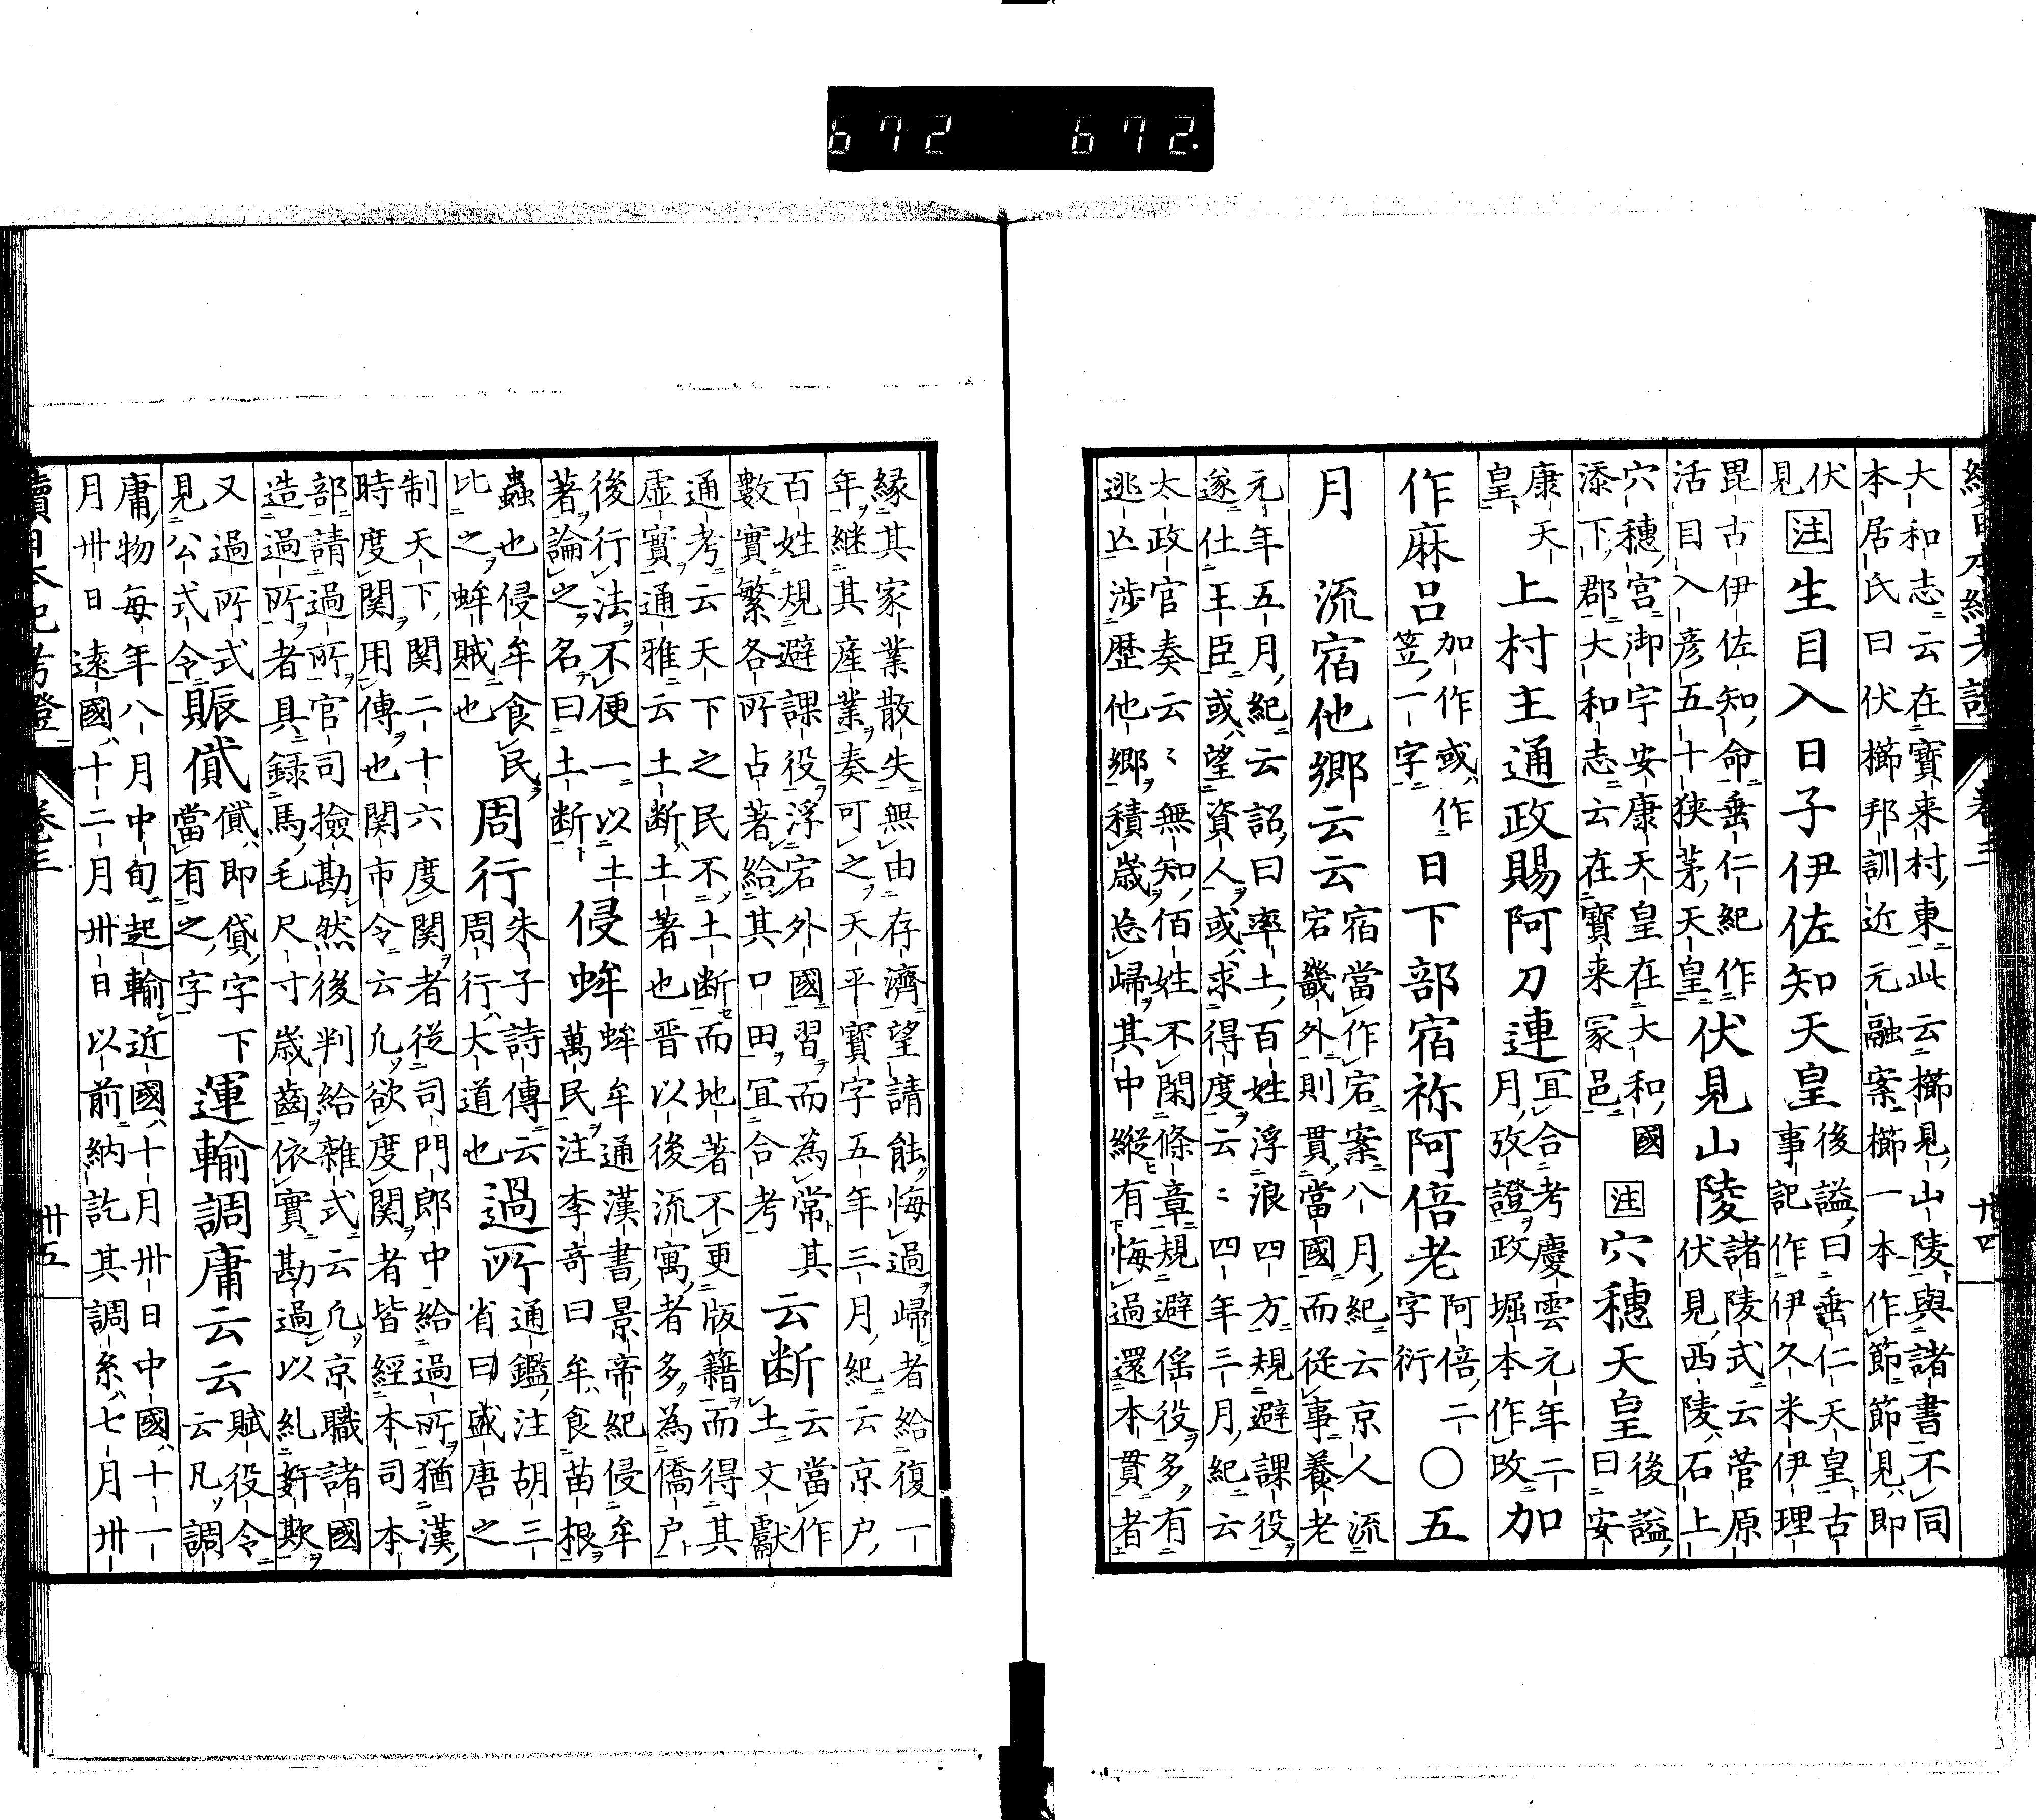 續日本紀考證 卷三 廿四
大和志云在寶来村東此云櫛見山陵與諸書不同
本居氏曰伏櫛邦訓近元融案櫛一本作節節見即
伏見 注 生目入日子伊佐知天皇 後謚曰垂仁天皇古事記作伊久米伊理
毘古伊佐知命垂仁紀作活目入彦五十狹茅天皇 伏見山陵 諸陵式云菅原伏見西陵石上
穴穗宮御宇安康天皇在大和國添下郡大和志云在寶来冢邑 注 穴穗天皇 後謚曰安
康天皇 上村主通政賜阿刀連 宜合考慶雲元年二月攷證政堀本作改 加
作麻呂 加作或作笠一字 日下部宿祢阿倍老 阿倍二字衍 〇五
月 流宿他郷云云 宿當作宕案八月紀云京人流宕畿外則貫當國而從事養老
元年五月紀云詔曰率土百姓浮浪四方規避課役
遂仕王臣或望資人或求得度云〻四年三月紀云
太政官奏云〻無知佰姓不閑條章規避徭役多有
逃亡涉歴他郷積歳忘歸其中縱有悔過還本貫者
縁其家業散失無由存濟望請能悔過歸者給復一
年継其産業奏可之天平寶字五年三月紀云京户
百姓規避課役浮宕外國習而為常其數實繁各所占著給其口田宜合考 云断 云當作土文獻
通考云天下之民不土断而地著不更版籍而得其
虚實通雅云土断土著也晋以後流寓者多為僑户
後行法不便一以土著論之名曰土断 侵蛑 蛑牟通漢書景帝紀侵牟萬民注李奇曰牟食苗根
蟲也侵牟食民比之蛑賊也 周行 朱子詩傳云周行大道也 過所 通鑑注胡三省曰盛唐之
制天下関二十六度関者從司門郎中給過所猶漢
時度関用傳也関市令云凢欲度関者皆經本司本
部請過所官司撿勘然後判給雜式云凢京職諸國
造過所者具録馬毛尺寸歳齒依實勘過以糺姧欺
又過所式見公式令 賑貣 貣即貸字下當有之字 運輸調庸云云 賦役令云凡調
庸物毎年八月中旬起輸近國十月卅日中國十一
月卅日遠國十二月卅日以前納訖其調糸七月卅
續日本紀考證 卷三 卅五
672 672.